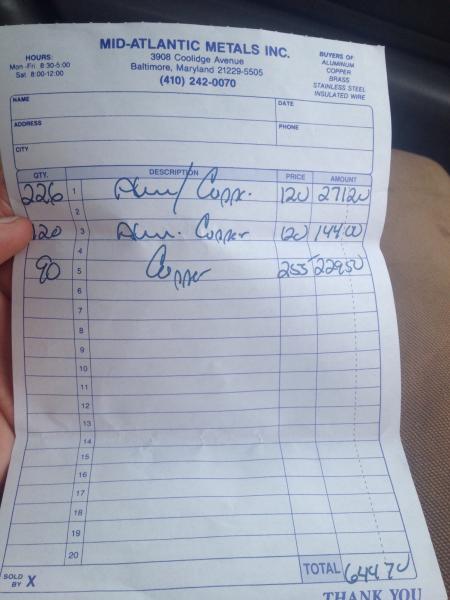 MID-ATLANTIC METALS INC.
3908 Coolidge Avenue
Baltimore, Maryland 21229-5505
(410) 242-0070
HOURS:
Mon -Fri 8:30-5:00
Sat. 8:00-12:00
BUYERS OF
ALUMINUM
COPPER
BRASS
STAINLESS STEEL
INSULATED WIRE
NAME
DATE
ADDRESS
PHONE
CITY
QTY. DESCRIPTION PRICE AMOUNT
226 1 Alum/Copper 120 27120
2
120 3 Alum. Copper 120 14400
4
90 5 Copper 255 22950
6
7
8
9
10
11
12
13
14
15
16
17
18
19
20
SOLD BY X
TOTAL 64470
THANK YOU